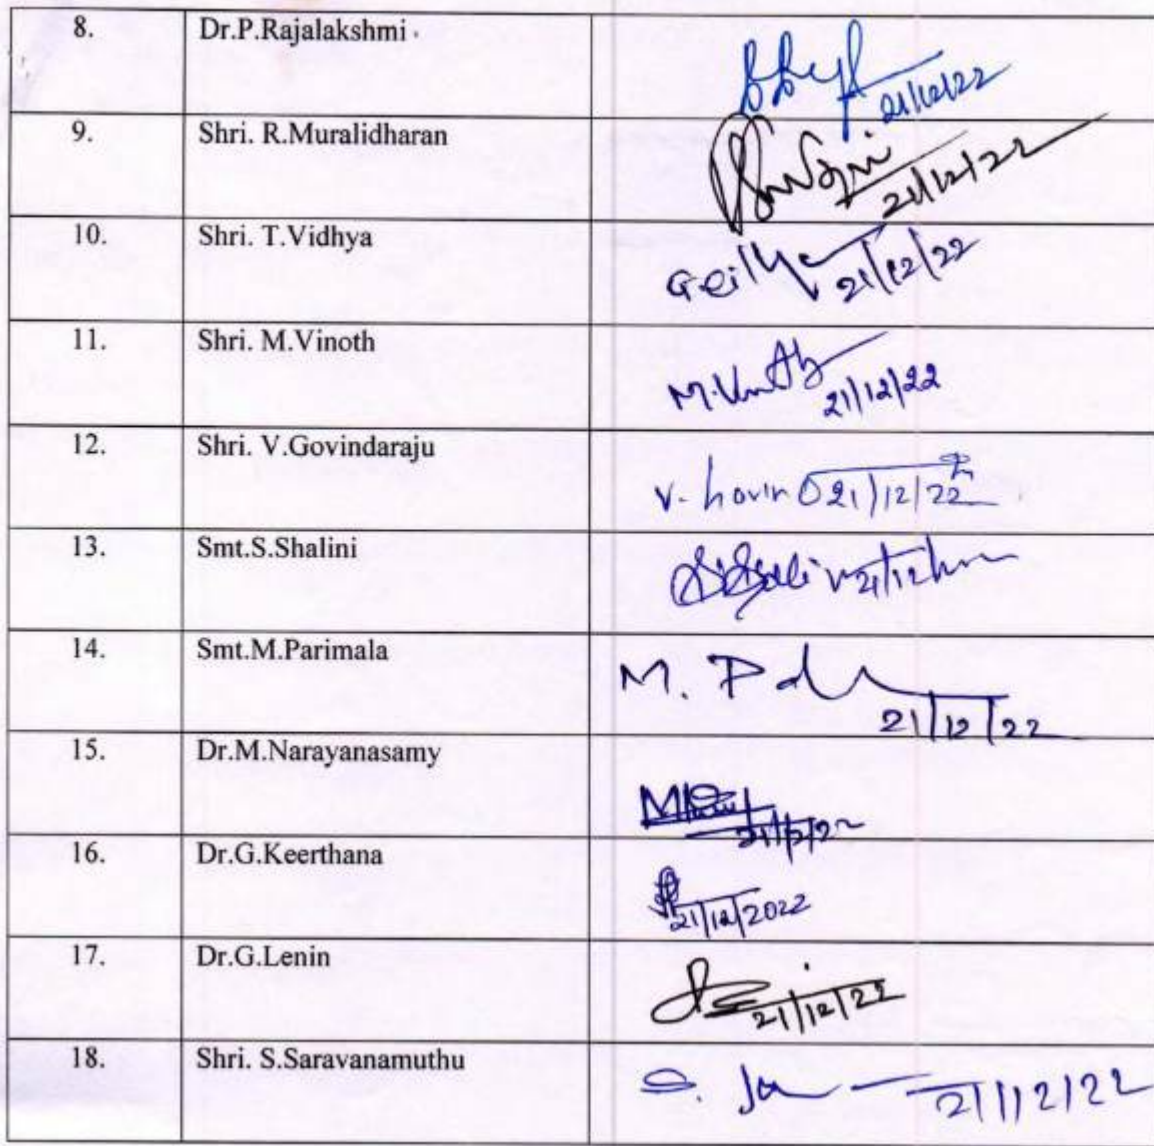 8. Dr.P.Rajalakshmi 21/12/22
9. Shri. R.Muralidharan 21/12/22
10. Shri. T.Vidhya 21/12/22
11. Shri. M.Vinoth 21/12/22
12. Shri. V.Govindaraju V. 21/12/22
13. Smt.S.Shalini
14. Smt.M.Parimala M. 21/12/22
15. Dr.M.Narayanasamy
16. Dr.G.Keerthana 21/12/2022
17. Dr.G.Lenin 21/12/22
18. Shri. S.Saravanamuthu S. 21/12/22